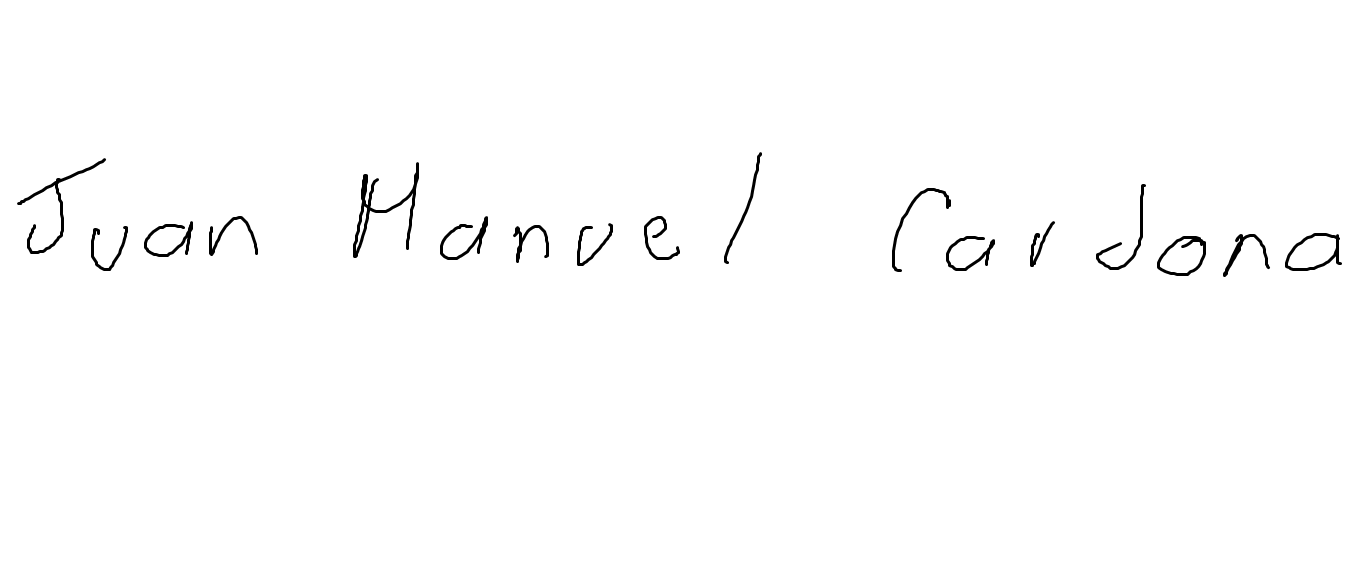 Juan Manuel Cardona